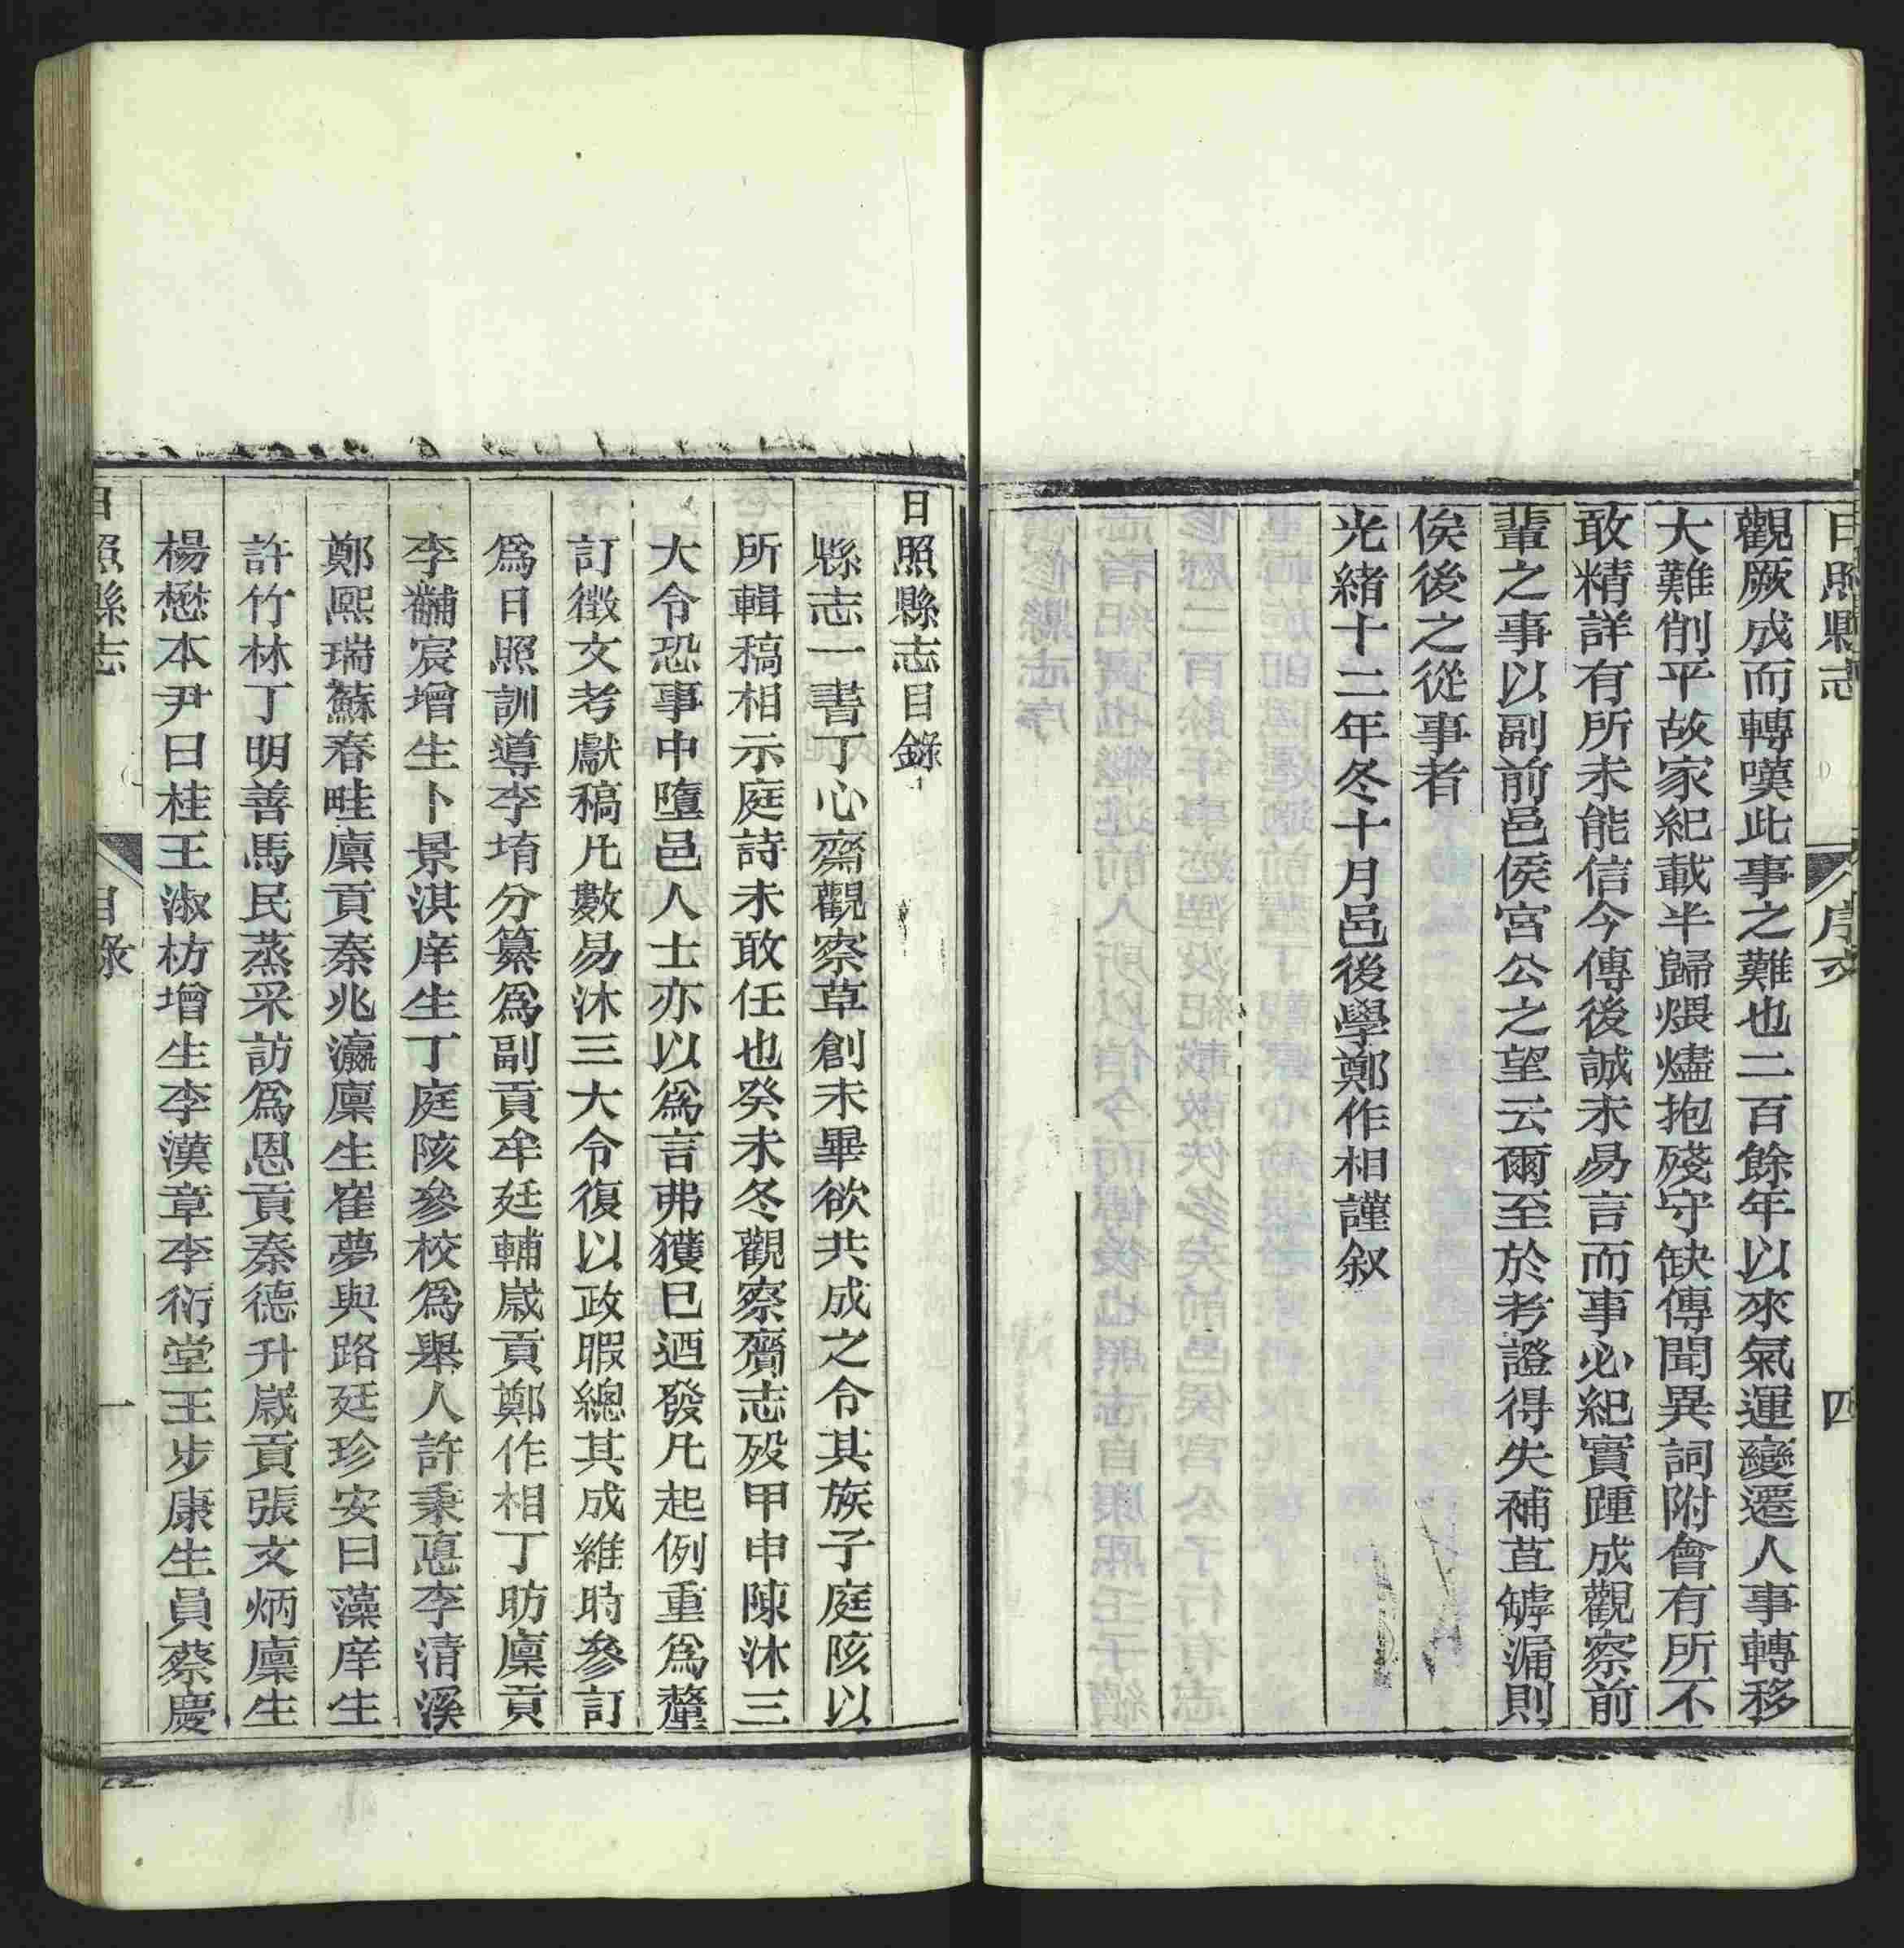 日照縣志
序文
四
觀厥成而轉嘆此事之難也二百餘年以來氣運變遷人事轉移
大難削平故家紀載半歸煨燼抱殘守缺傳聞異詞附會有所不
敢精詳有所未能信今傳後誠未易言而事必紀實踵成觀察前
輩之事以副前邑侯宮公之望云爾至於考證得失補苴罅漏則
俟後之從事者
光緒十二年冬十月邑後學鄭作相謹叙
日照縣志目錄
縣志一書丁心齋觀察草創未畢欲共成之令其族子庭陔以
所輯稿相示庭詩未敢任也癸未冬觀察齎志歿甲申陳沐三
大令恐事中墮邑人士亦以爲言弗獲已迺發凡起例重爲釐
訂徵文考獻稿凡數易沐三大令復以政暇總其成維時參訂
爲日照訓導李堉分纂爲副貢牟廷輔歲貢鄭作相丁昉廩貢
李黼宸增生卜景淇庠生丁庭陔參校爲舉人許秉悳李清溪
鄭熙瑞蘇春畦廩貢秦兆瀛廩生崔夢與路廷珍安曰藻庠生
許竹林丁明善馬民蒸采訪爲恩貢秦德升歲貢張文炳廩生
楊懋本尹曰桂王淑枋增生李漢章李衍堂王步康生員蔡慶
日照縣志
目錄
一